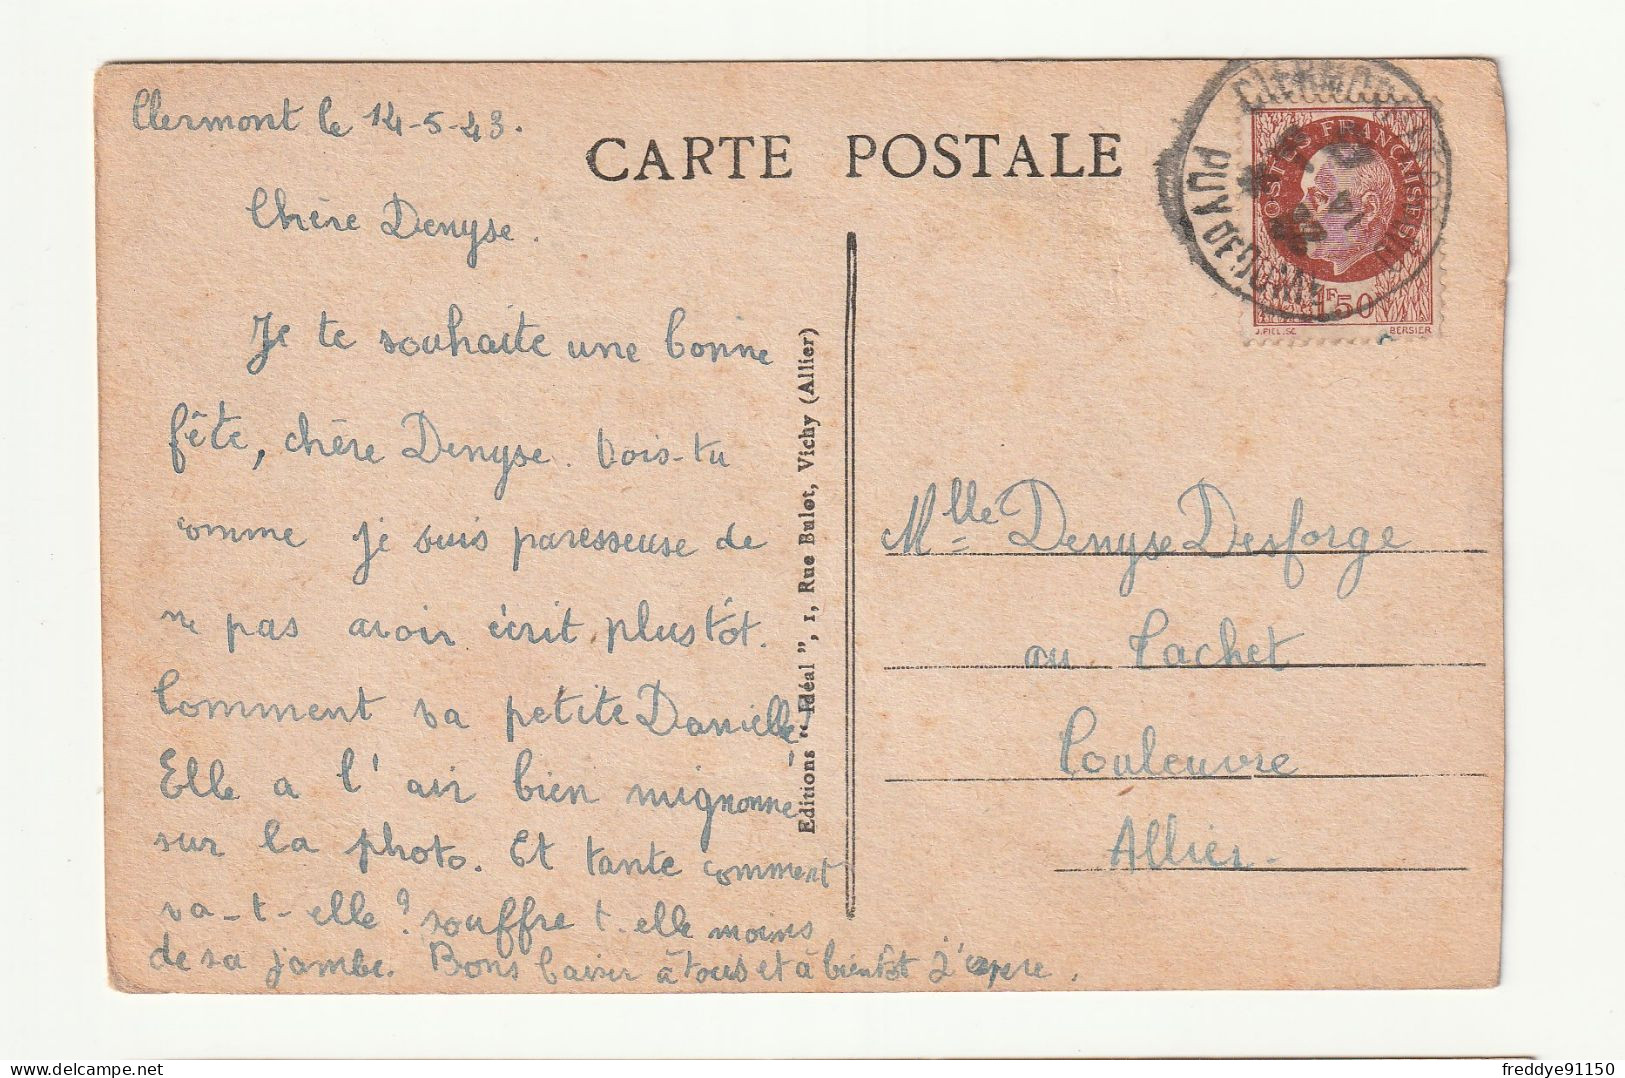 Clermont le 14-5-43.
CARTE POSTALE
Chère Denyse.
Je te souhaite une bonne
fête, chère Denyse. Vois-tu
comme je suis paresseuse de
ne pas avoir écrit plustôt.
Comment va petite Danielle!
Elle a l'air bien mignonne
sur la photo. Et tante comment
va-t-elle? souffre t-elle moins
de sa jambe. Bons baiser à tous et à bientôt j'espere.
Editions "Idéal", 1, Rue Bulot, Vichy (Allier)
POSTES FRANÇAISES
1F50
J.PIEL.SC. BERSIER
PUY DE DOME
Mlle Denyse Desforge
au Cachet
Couleuvre
Allier.
freddye91150